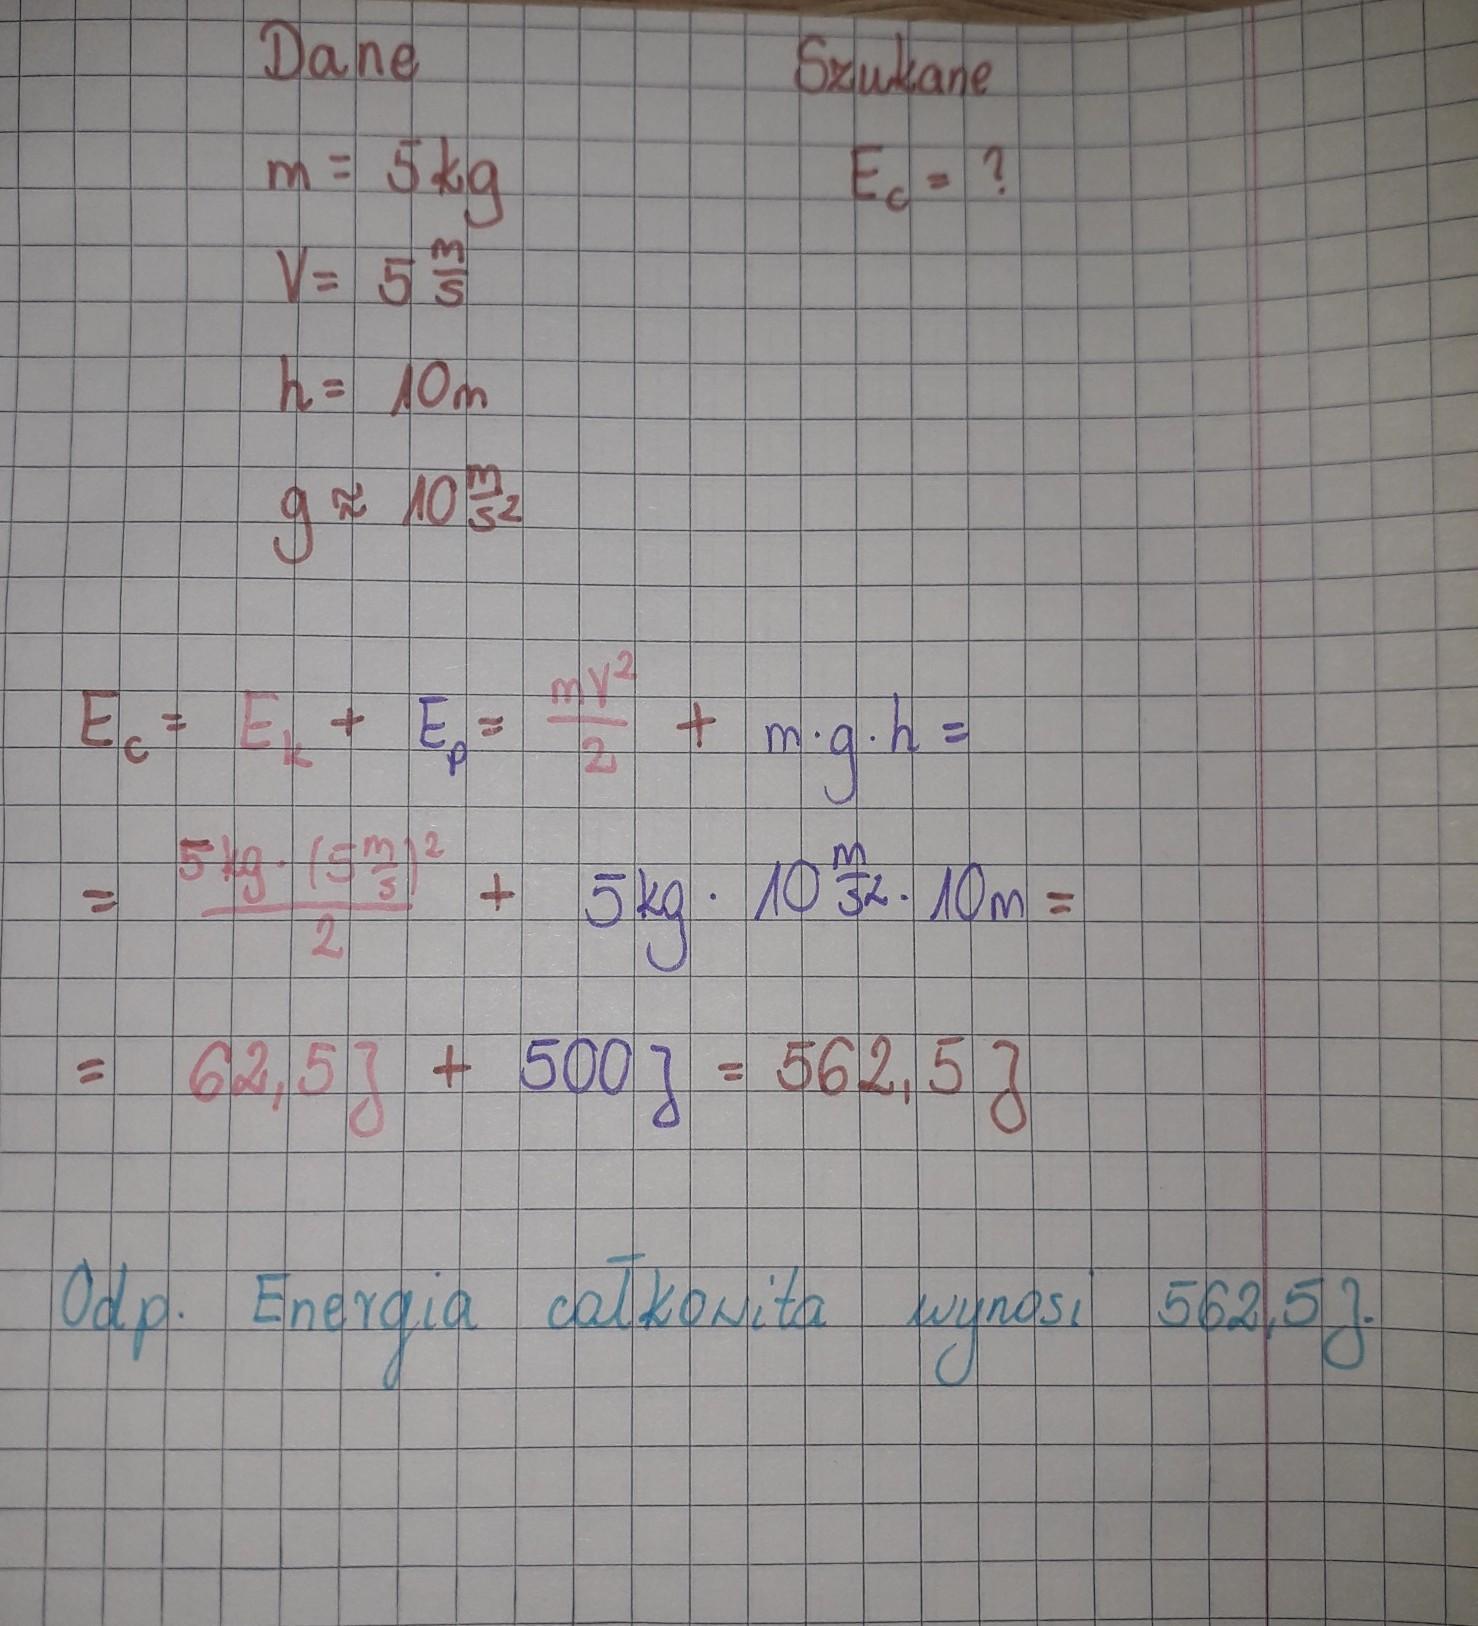 Dane Szukane
m = 5kg E_c = ?
V = 5 m/s
h = 10m
g ≈ 10 m/s²
E_c = E_k + E_p = mV²/2 + m·g·h =
= 5kg·(5 m/s)²/2 + 5kg · 10 m/s² · 10m =
= 62,5J + 500J = 562,5J
Odp. Energia całkowita wynosi 562,5J.